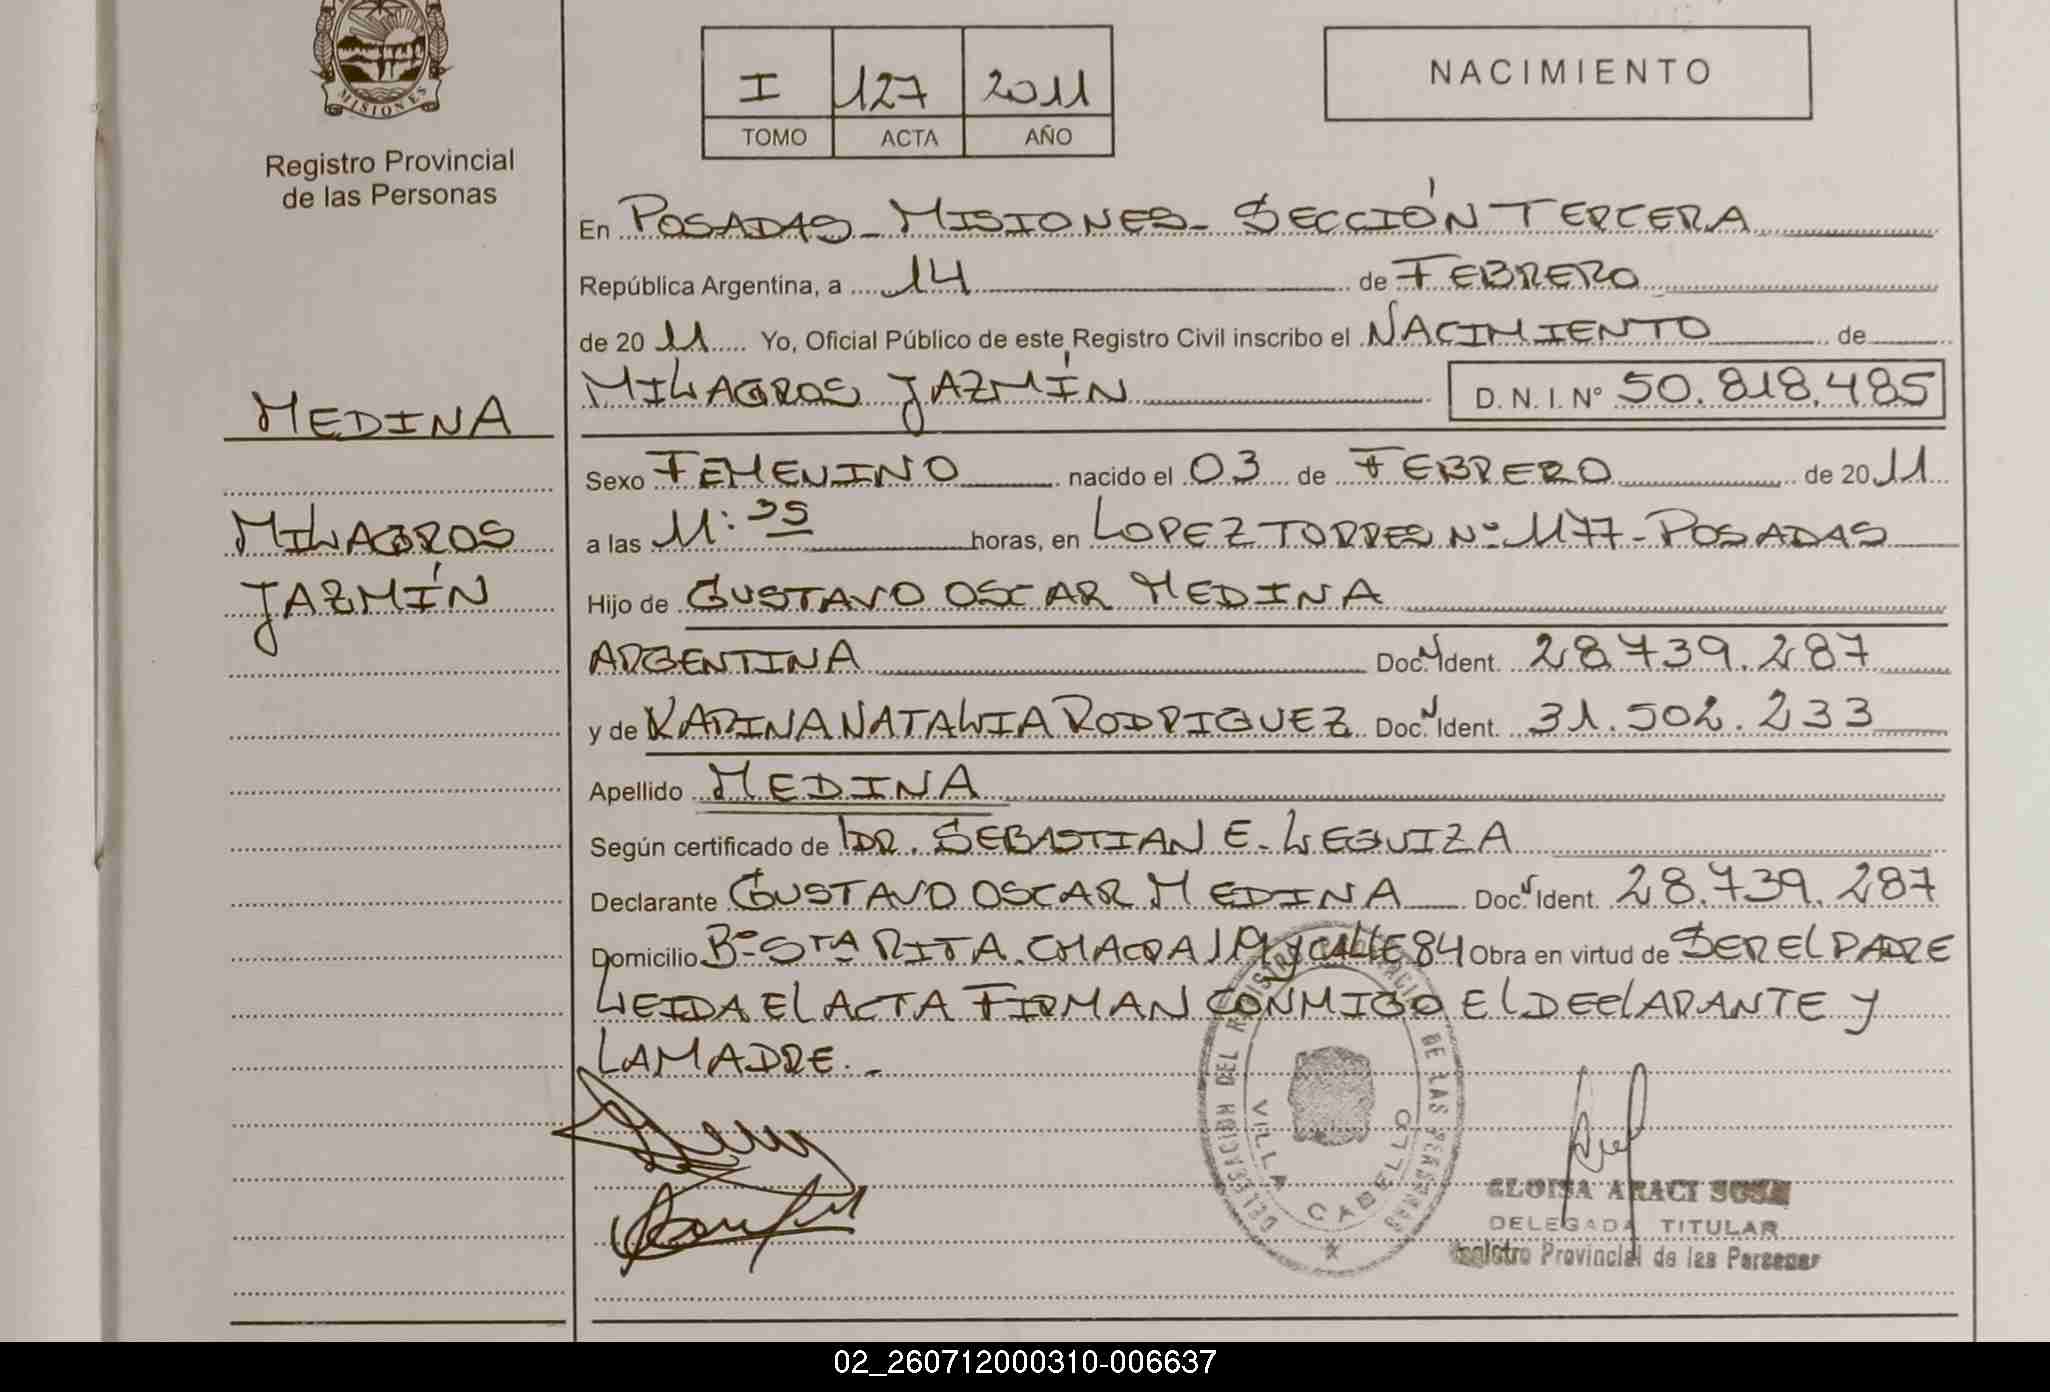 MISIONES
Registro Provincial
de las Personas
I 127 2011
TOMO ACTA AÑO
NACIMIENTO
En POSADAS - MISIONES - SECCIÓN TERCERA
República Argentina, a 14 de FEBRERO
de 2011 Yo, Oficial Público de este Registro Civil inscribo el NACIMIENTO de
MILAGROS JAZMÍN D.N.I. Nº 50.818.485
MEDINA
MILAGROS
JAZMÍN
Sexo FEMENINO nacido el 03 de FEBRERO de 2011
a las 11:35 horas, en LOPEZ TORRES Nº 1177 - POSADAS
Hijo de GUSTAVO OSCAR MEDINA
ARGENTINA Doc. Ident. 28.739.287
y de KARINA NATALIA RODRIGUEZ Doc. Ident. 31.502.233
Apellido MEDINA
Según certificado de DR. SEBASTIAN E. LEGUIZA
Declarante GUSTAVO OSCAR MEDINA Doc. Ident. 28.739.287
Domicilio Bº STA RITA. CHACRA 119 y CALLE 84 Obra en virtud de SER EL PADRE
LEIDA EL ACTA FIRMAN CONMIGO EL DECLARANTE y
LA MADRE. -
DELEGACION DEL REGISTRO PROVINCIAL DE LAS PERSONAS
VILLA CABELLO
ELOISA ARACI SOSA
DELEGADA TITULAR
Registro Provincial de las Personas
02_260712000310-006637